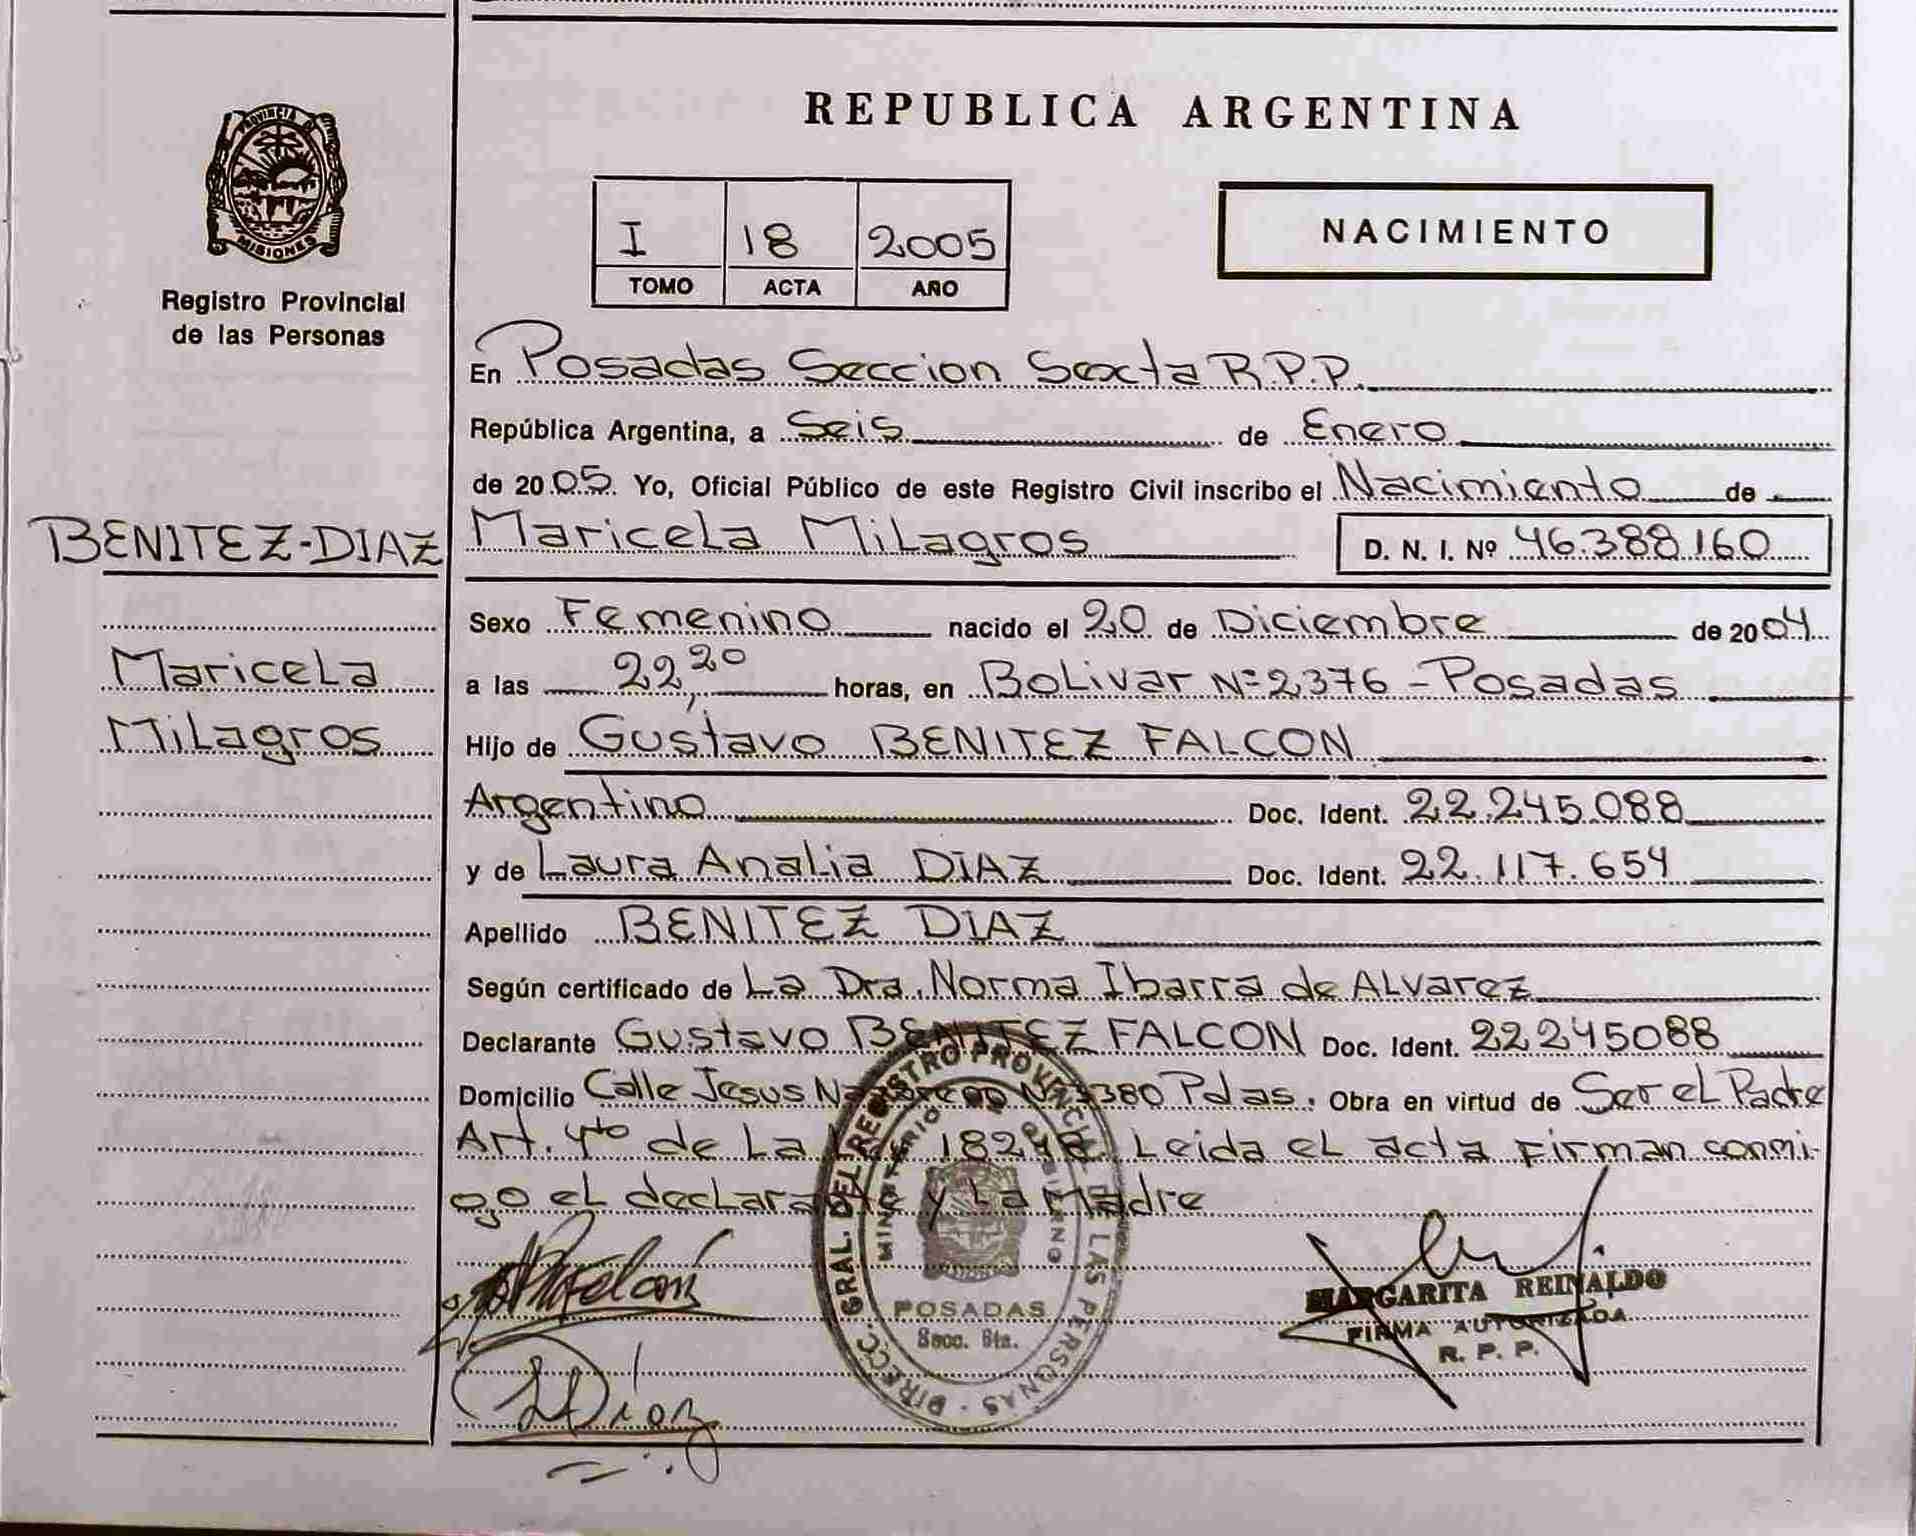 PROVINCIA DE
MISIONES
Registro Provincial
de las Personas
BENITEZ-DIAZ
Maricela
Milagros
REPUBLICA ARGENTINA
I 18 2005
TOMO ACTA AÑO
NACIMIENTO
En Posadas Seccion Sexta R.P.P.
República Argentina, a Seis de Enero
de 2005. Yo, Oficial Público de este Registro Civil inscribo el Nacimiento de
Maricela Milagros D. N. I. Nº 46.388.160
Sexo Femenino nacido el 20 de Diciembre de 2004
a las 22,20 horas, en Bolivar Nº 2376 - Posadas
Hijo de Gustavo BENITEZ FALCON
Argentino Doc. Ident. 22.245.088
y de Laura Analia DIAZ Doc. Ident. 22.117.654
Apellido BENITEZ DIAZ
Según certificado de La Dra. Norma Ibarra de Alvarez
Declarante Gustavo BENITEZ FALCON Doc. Ident. 22245088
Domicilio Calle Jesus Pdas. Obra en virtud de Ser el Padre
Art. 4to de La Leida el acta Firman conmi-
go el declarante y La Madre
DIRECC. GRAL. DEL REGISTRO PROVINCIAL DE LAS PERSONAS
MINISTERIO DE GOBIERNO
POSADAS
Secc. 6ta.
MARGARITA REINALDO
FIRMA AUTORIZADA
R. P. P.
Diaz